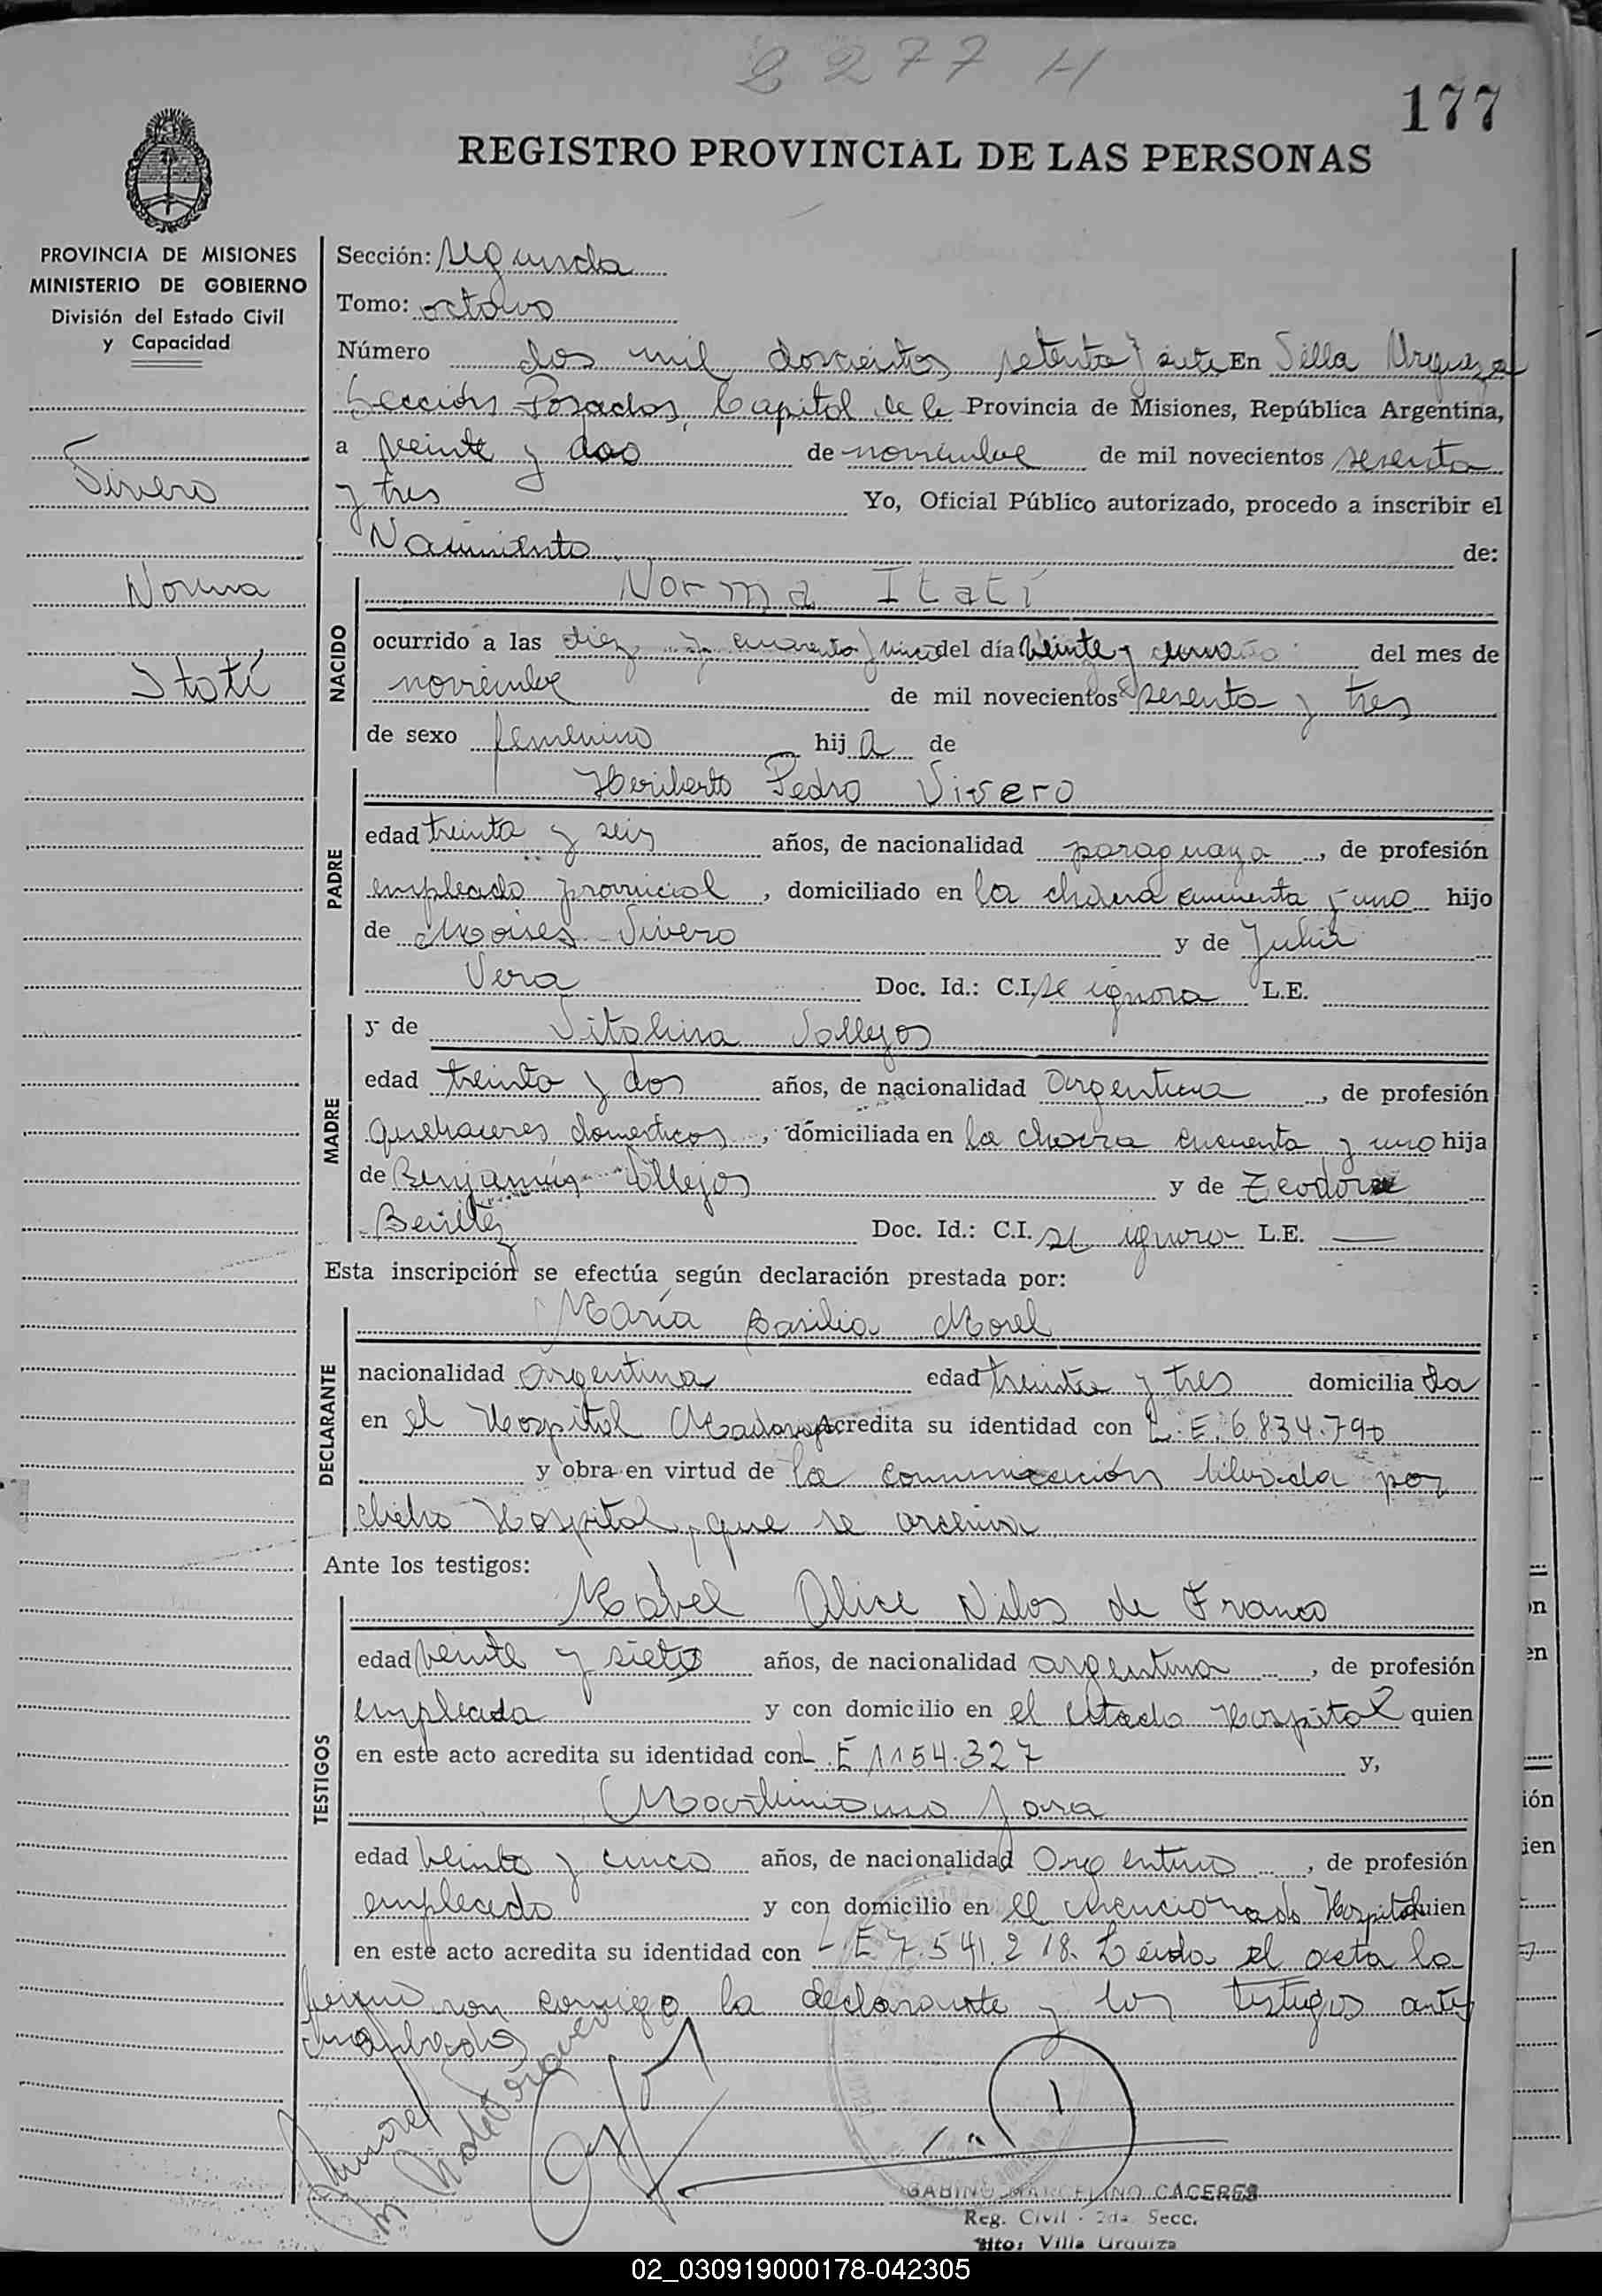 2277 H
177
REGISTRO PROVINCIAL DE LAS PERSONAS
PROVINCIA DE MISIONES
MINISTERIO DE GOBIERNO
División del Estado Civil
y Capacidad
Vivero
Norma
Itatí
Sección: segunda
Tomo: octavo
Número dos mil doscientos setenta y siete En Villa Urquiza
Sección Posadas, Capital de la Provincia de Misiones, República Argentina,
a veinte y dos de noviembre de mil novecientos sesenta
y tres Yo, Oficial Público autorizado, procedo a inscribir el
Nacimiento de:
NACIDO
Norma Itatí
ocurrido a las diez y cuarenta y cinco del día veinte y uno del mes de
noviembre de mil novecientos sesenta y tres
de sexo femenino hija de
PADRE
Heriberto Pedro Vivero
edad treinta y seis años, de nacionalidad paraguaya, de profesión
empleado provincial, domiciliado en la chacra cincuenta y uno hijo
de Moises Vivero y de Julia
Vera Doc. Id.: C.I. se ignora L.E.
MADRE
y de Vitalina Vallejos
edad treinta y dos años, de nacionalidad Argentina, de profesión
quehaceres domesticos, domiciliada en la chacra cincuenta y uno hija
de Benjamín Vallejos y de Teodora
Benitez Doc. Id.: C.I. se ignora L.E. —
Esta inscripción se efectúa según declaración prestada por:
DECLARANTE
María Basilia Morel
nacionalidad argentina edad treinta y tres domiciliada
en el Hospital Madariaga acredita su identidad con L.E. 6834.790
y obra en virtud de la comunicación librada por
dicho Hospital, que se archiva
Ante los testigos:
TESTIGOS
Mabel Alice de Franco
edad veinte y siete años, de nacionalidad argentina, de profesión
empleada y con domicilio en el citado Hospital quien
en este acto acredita su identidad con L.E 1154.327 y,
Maximiano Jara
edad veinte y cinco años, de nacionalidad Argentino, de profesión
empleado y con domicilio en el mencionado Hospital quien
en este acto acredita su identidad con L E 7.541.218. Leida el acta la
firman conmigo la declarante y los testigos antes
nombrados
GABINO MARCELINO CACERES
Reg. Civil - 2da. Secc.
Villa Urquiza
02_030919000178-042305